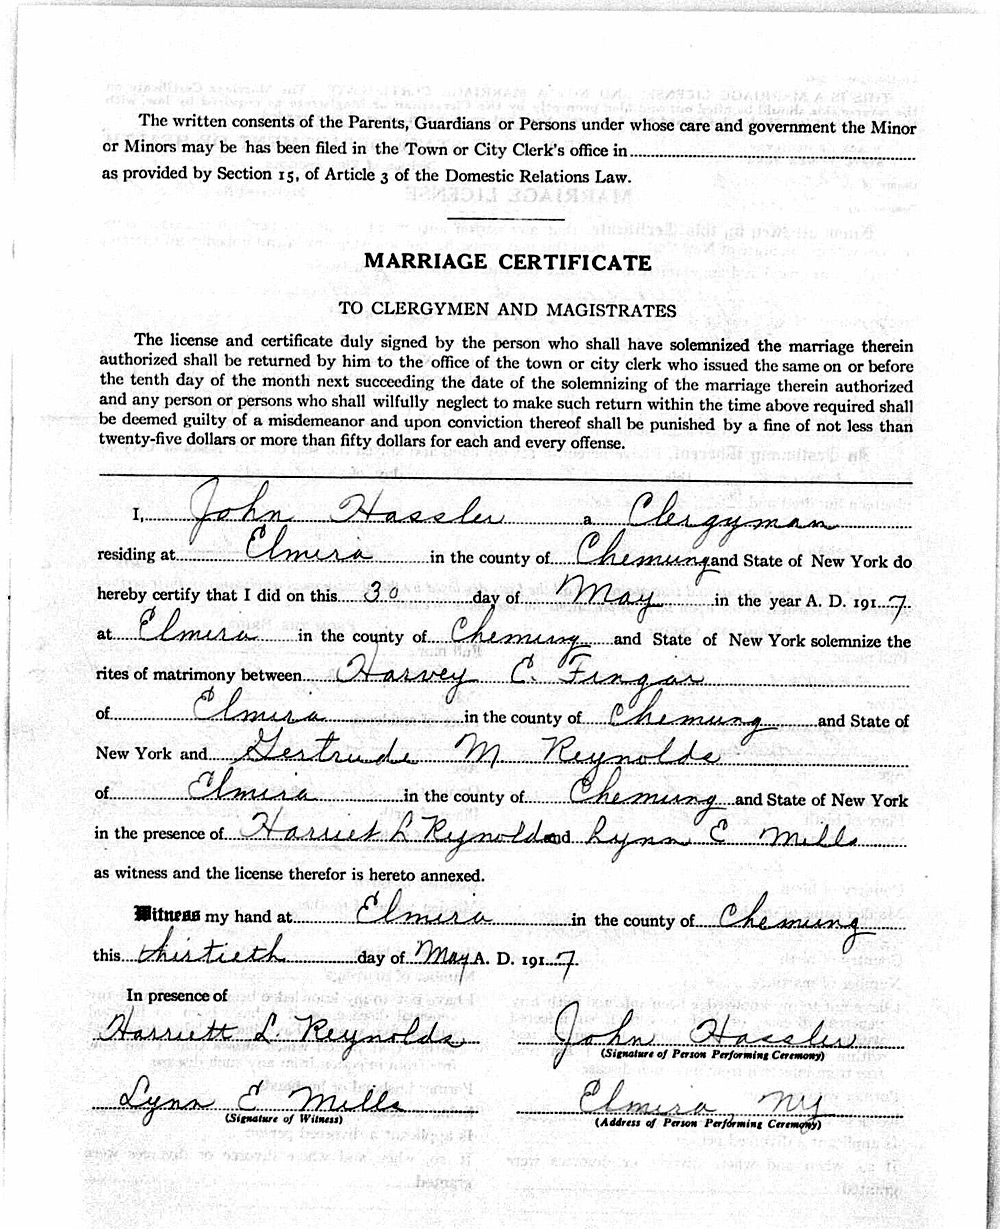 The written consents of the Parents, Guardians or Persons under whose care and government the Minor
or Minors may be has been filed in the Town or City Clerk's office in
as provided by Section 15, of Article 3 of the Domestic Relations Law.
MARRIAGE CERTIFICATE
TO CLERGYMEN AND MAGISTRATES
The license and certificate duly signed by the person who shall have solemnized the marriage therein
authorized shall be returned by him to the office of the town or city clerk who issued the same on or before
the tenth day of the month next succeeding the date of the solemnizing of the marriage therein authorized
and any person or persons who shall wilfully neglect to make such return within the time above required shall
be deemed guilty of a misdemeanor and upon conviction thereof shall be punished by a fine of not less than
twenty-five dollars or more than fifty dollars for each and every offense.
I, John Hassler a Clergyman
residing at Elmira in the county of Chemung and State of New York do
hereby certify that I did on this 30 day of May in the year A. D. 1917.
at Elmira in the county of Chemung and State of New York solemnize the
rites of matrimony between Harvey E. Fingar
of Elmira in the county of Chemung and State of
New York and Gertrude M Reynolds
of Elmira in the county of Chemung and State of New York
in the presence of Harriet L Reynolds and Lynn E Mills
as witness and the license therefor is hereto annexed.
Witness my hand at Elmira in the county of Chemung
this thirtieth day of May A. D. 1917.
In presence of
Harriett L. Reynolds John Hassler
(Signature of Person Performing Ceremony)
Lynn E Mills Elmira, NY
(Signature of Witness) (Address of Person Performing Ceremony)